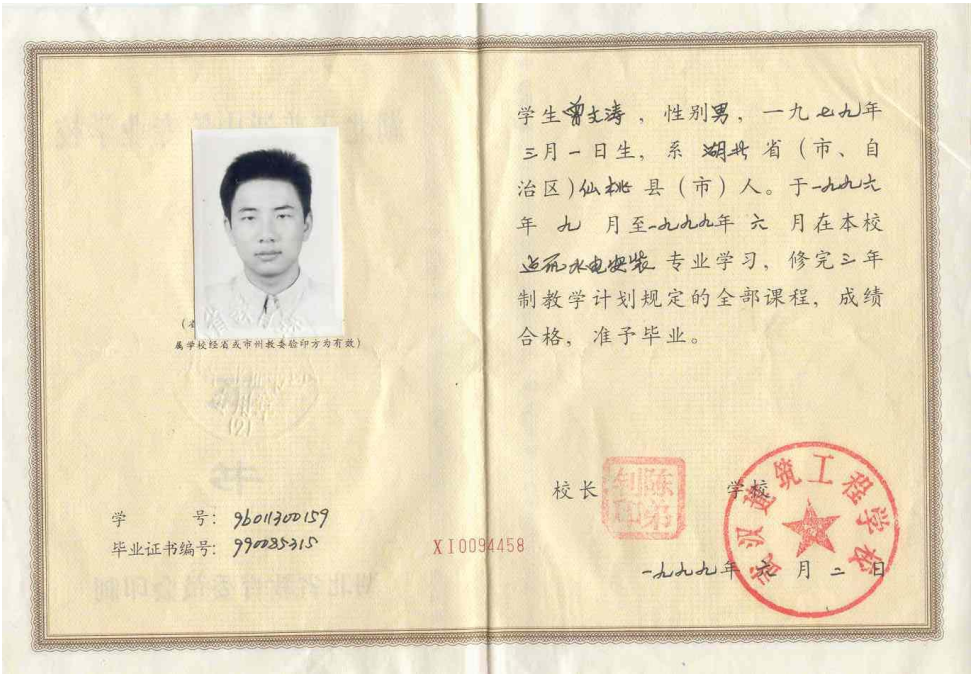 属学校经省或市州教委验印方为有效)
学 号: 9601300159
毕业证书编号: 990085315
XI0094458
学生曾文涛,性别男,一九七九年
三月一日生,系湖北省(市、自
治区)仙桃县(市)人。于一九九六
年九月至一九九九年六月在本校
水电安装专业学习,修完三年
制教学计划规定的全部课程,成绩
合格,准予毕业。
校长
学校
武汉建筑工程学校
一九九九年六月二日